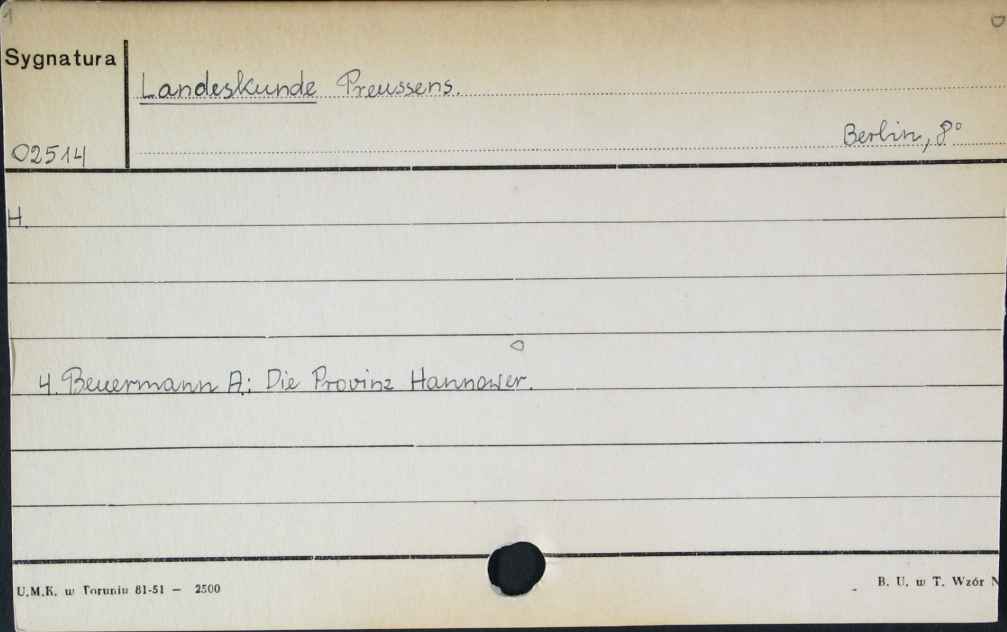 1
Sygnatura
Landeskunde Preussens.
Berlin, 8°
02514
H.
4. Beuermann A.: Die Provinz Hannower.
U.M.K. w Toruniu 81-51 — 2500
B. U. w T. Wzór N